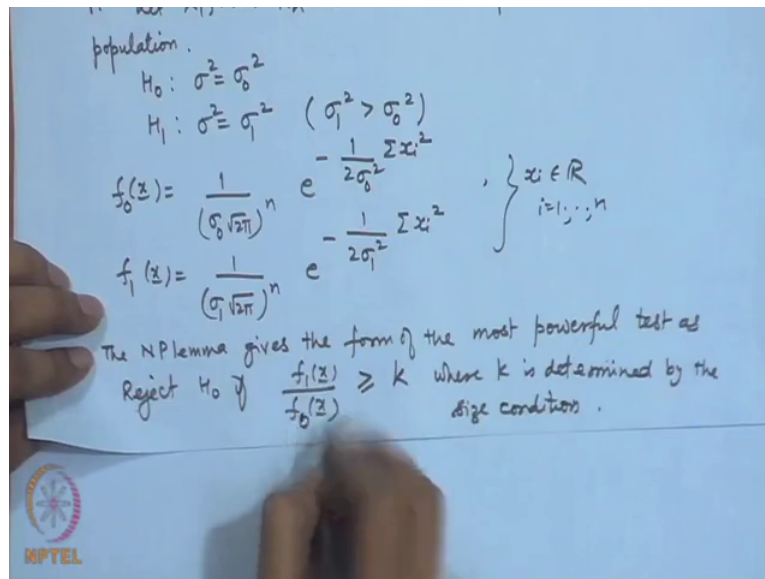 population.
H₀: σ² = σ₀²
H₁: σ² = σ₁² (σ₁² > σ₀²)
f₀(x) = 1/(σ₀√2π)ⁿ e^(- 1/(2σ₀²) Σxᵢ²) , } xᵢ ∈ ℝ
i=1,..,n
f₁(x) = 1/(σ₁√2π)ⁿ e^(- 1/(2σ₁²) Σxᵢ²)
The NP lemma gives the form of the most powerful test as
Reject H₀ if f₁(x)/f₀(x) ≥ k where k is determined by the
size condition.
NPTEL